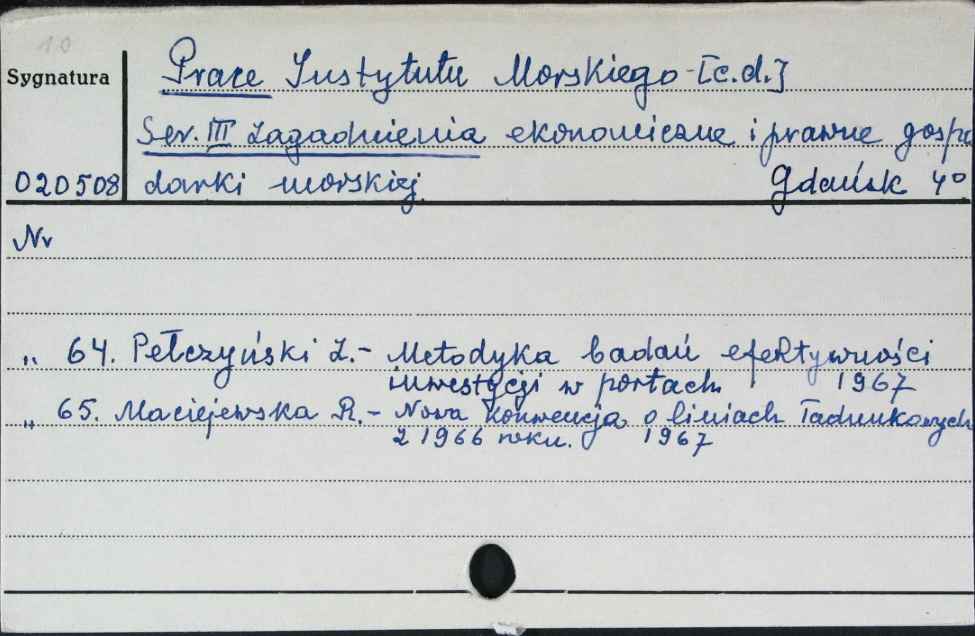 10
Prace Instytutu Morskiego - [c.d.]
Sygnatura
Ser. III Zagadnienia ekonomiczne i prawne gospo
020508 darki morskiej. Gdańsk 4º
Nr
„ 64. Pełczyński Z. - Metodyka badań efektywności
inwestycji w portach 1967
„ 65. Maciejewska R. - Nowa konwencja o liniach ładunkowych
z 1966 roku. 1967